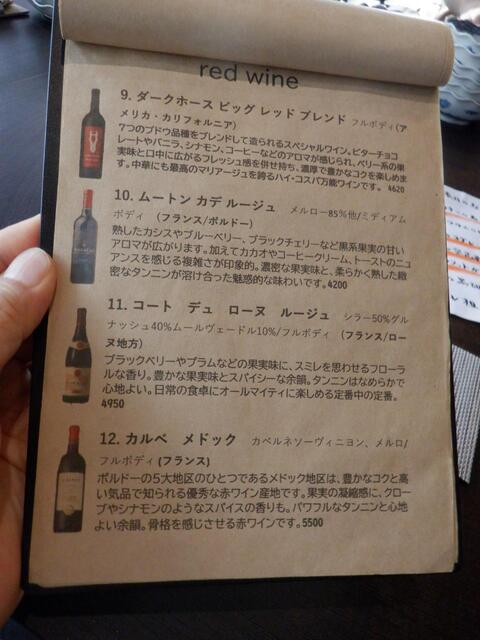 red wine
9. ダークホース ビッグ レッド ブレンド フルボディ(ア
メリカ・カリフォルニア)
7つのブドウ品種をブレンドして造られるスペシャルワイン。ビターチョコ
レートやバニラ、シナモン、コーヒーなどのアロマが感じられ、ベリー系の果
実味と口中に広がるフレッシュ感を併せ持ち、濃厚で豊かなコクを楽しめま
す。中華にも最高のマリアージュを誇るハイ・コスパ万能ワインです。 4620
10. ムートン カデ ルージュ メルロー85%他/ミディアム
ボディ (フランス/ボルドー)
熟したカシスやブルーベリー、ブラックチェリーなど黒系果実の甘い
アロマが広がります。加えてカカオやコーヒークリーム、トーストのニュ
アンスを感じる複雑さが印象的。濃密な果実味と、柔らかく熟した緻
密なタンニンが溶け合った魅惑的な味わいです。4200
11. コート デュ ローヌ ルージュ シラー50%グル
ナッシュ40%ムールヴェードル10%/フルボディ (フランス/ロー
ヌ地方)
ブラックベリーやプラムなどの果実味に、スミレを思わせるフローラ
ルな香り。豊かな果実味とスパイシーな余韻。タンニンはなめらかで
心地よい。日常の食卓にオールマイティに楽しめる定番中の定番。
4950
12. カルベ メドック カベルネソーヴィニヨン、メルロ/
フルボディ (フランス)
ボルドーの5大地区のひとつであるメドック地区は、豊かなコクと高
い気品で知られる優秀な赤ワイン産地です。果実の凝縮感に、クロー
ブやシナモンのようなスパイスの香りも。パワフルなタンニンと心地
よい余韻。骨格を感じさせる赤ワインです。5500